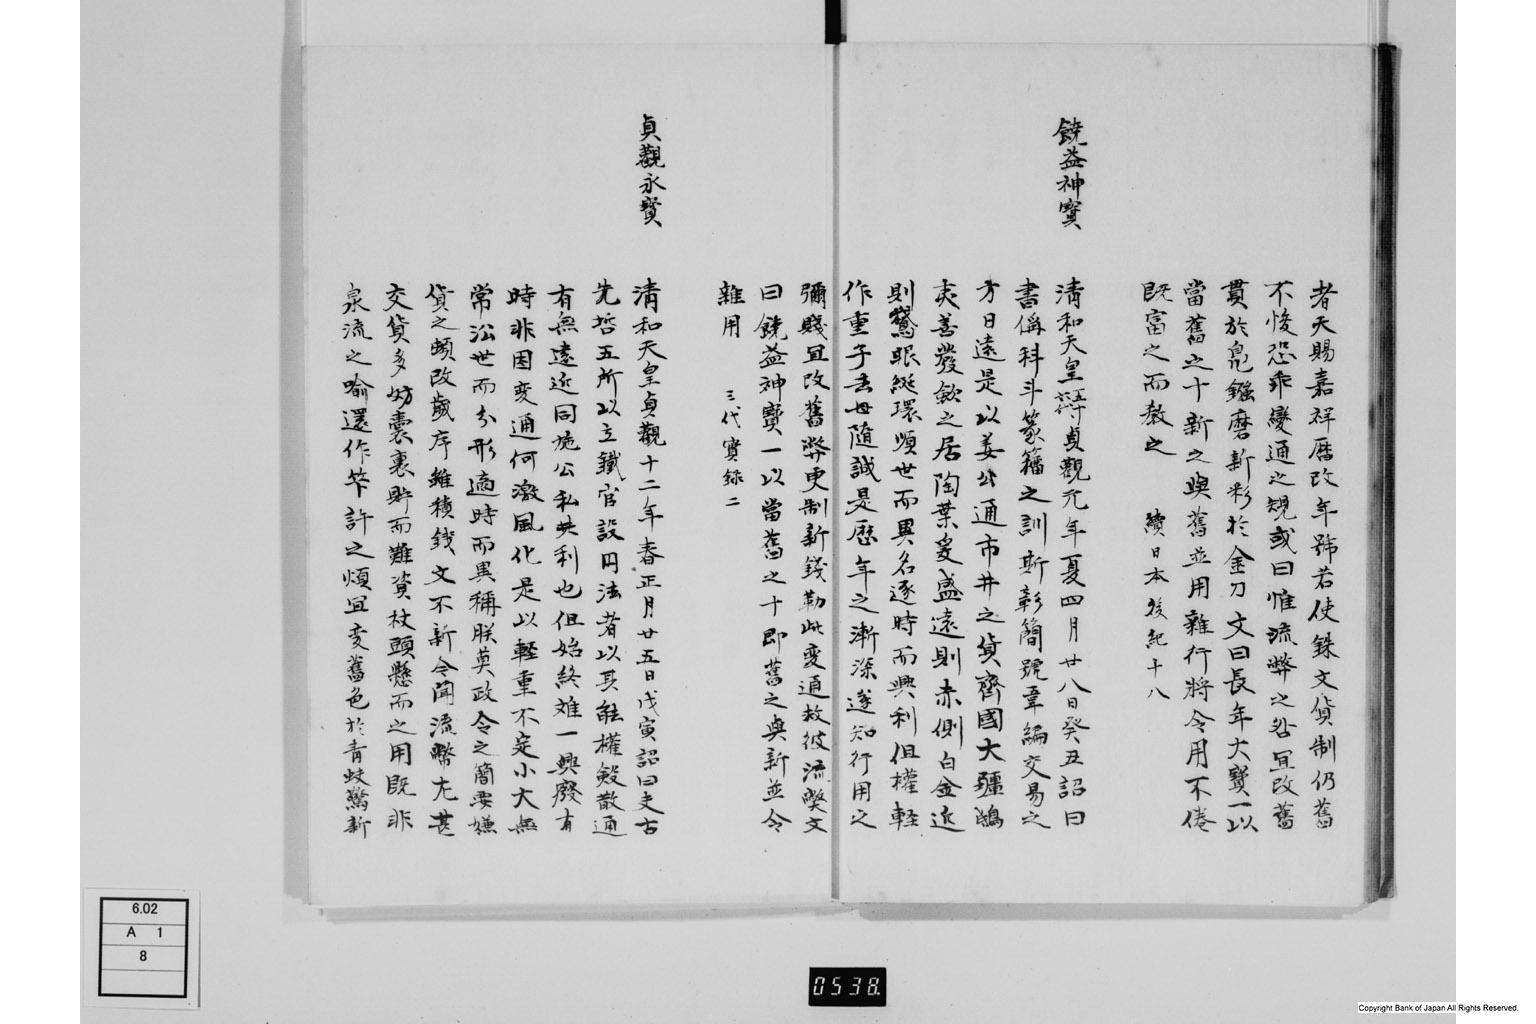 者天賜嘉祥曆改年號若使銖文貨制仍舊
不悛恐乖變通之規或曰惟流弊之咎宜改舊
貫於鳧鏹磨新彩於金刀文曰長年大寶一以
當舊之十新之與舊並用雜行將令用不倦
既富之而教之 續日本後紀十八
饒益神寶
清和天皇 貞觀元年夏四月廿八日癸丑詔曰
書偁科斗篆籀之訓斯彰簡號韋編交易之
方日遠是以姜公通市井之貨齊國大疆鴟
夷善發斂之居陶業爰盛遠則赤側白金近
則鵞眼綖環順世而異名逐時而興利但權輕
作重子去母隨誠是歷年之漸深遂知行用之
彌賤宜改舊弊更制新錢勒此變通救彼流弊文
曰饒益神寶一以當舊之十即舊之與新並令
雜用 三代實録二
貞觀永寶
清和天皇貞觀十二年春正月廿五日戊寅詔曰夫古
先哲王所以立鐵官設円法者以其能權斂散通
有無遠近同施公私共利也但始終难一興廢有
時非因变通何激風化是以輕重不定小大無
常沿世而分形適時而異稱朕莫政令之簡要嫌
貨之頻改歳序雖積錢文不新今聞流幣尤甚
交貨多妨囊裏貯而難資杖頭懸而之用既非
泉流之喩還作笇許之煩宜变舊色於青蚨驚新
6.02
A 1
8
0538.
Copyright Bank of Japan All Rights Reserved.